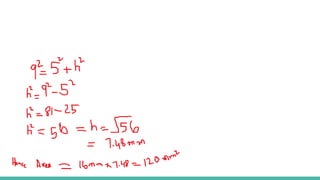 9² = 5² + h²
h² = 9² - 5²
h² = 81 - 25
h² = 56 = h = √56
= 7.48 mm
Hence Area = 16mm x 7.48 = 120 mm²